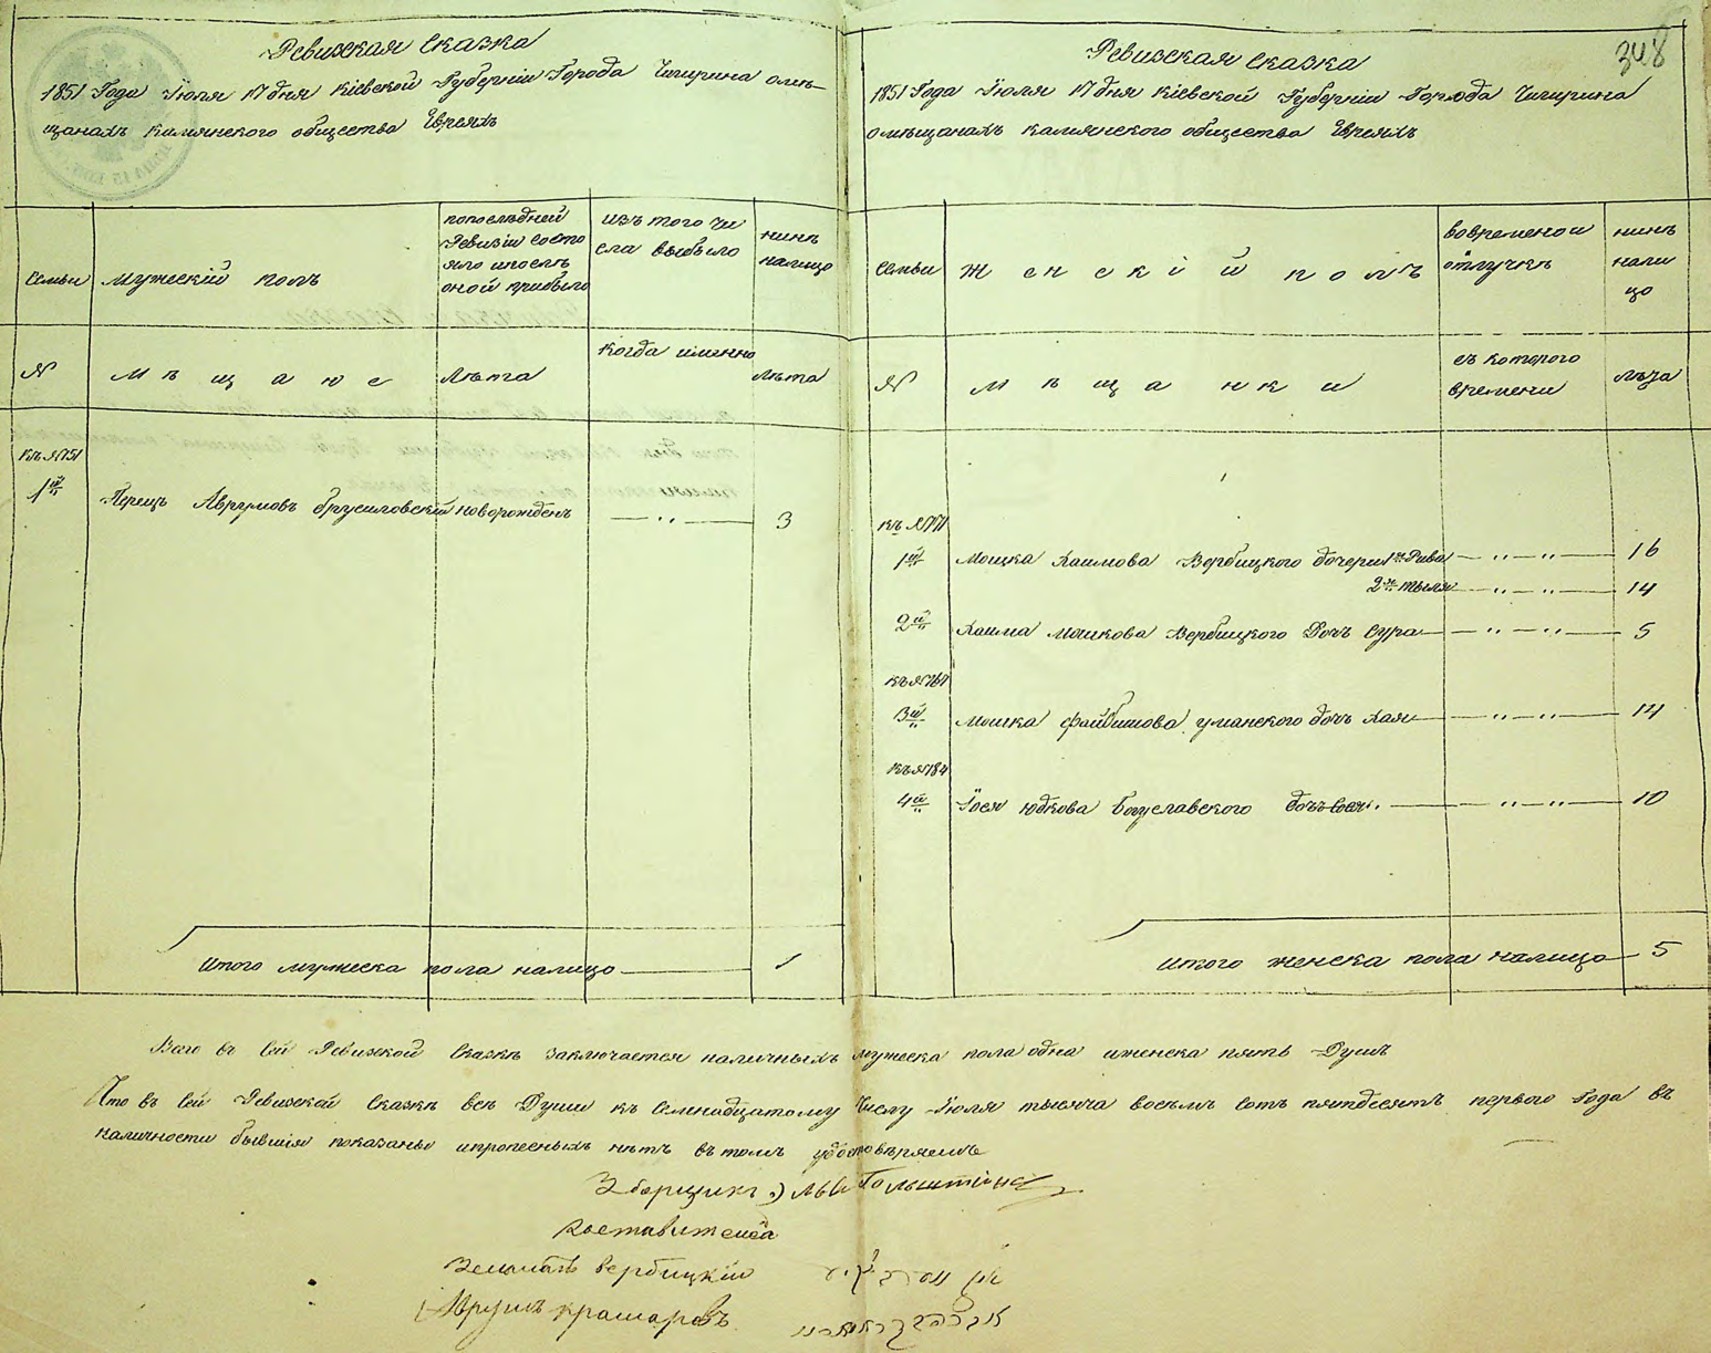 348
Ревизская Сказка
1851 Года Июля 17 дня Кіевской Губерніи Города Чигирина омѣ-
щанахъ Камянского общества Евреяхъ
Семьи
Мужескій полъ
попослѣдней
Ревизіи состо
яло ипослѣ
оной прибыло
изъ того чи
сла выбыло
нинѣ
налицо
№
Мѣщане
лѣта
когда именно
лѣта
къ №151
1й
Перецъ Аврумовъ Брусиловскій новорожденъ — „ — 3
Итого мужеска пола налицо — 1
Ревизская Сказка
1851 Года Июля 17 дня Кіевской Губерніи Города Чигирина
омѣщанахъ Камянского общества Евреяхъ
Семьи
Женскій полъ
вовременои
отлучкѣ
нинѣ
нали
цо
№
Мѣщанки
съ которого
времени
лѣта
къ №171
1й Мошка Хаимова Вербицкого дочери 1я Рива — „ — „ — 16
2я Тыля — „ — „ — 14
2й Хаима Мошкова Вербицкого Дочь Сура — „ — „ — 5
къ №167
3й Мошка Файбишова Уманского дочь Хая — „ — „ — 14
къ №184
4й Іося Юдкова Богуславского дочь — „ — „ — 10
Итого женска пола налицо — 5
Всего въ сей Ревизской Сказкѣ заключается наличныхъ мужеска пола одна иженска пять Душъ
Что въ сей Ревизской Сказкѣ всѣ Души къ Семнадцатому Числу Июля тысяча восемъ сотъ пятдесятъ первого Года въ
наличности бывшія показаны ипропесныхъ нѣтъ въ томъ удостовѣряемъ
Зборщикъ
Вербицкій
Аврумъ Крамаровъ